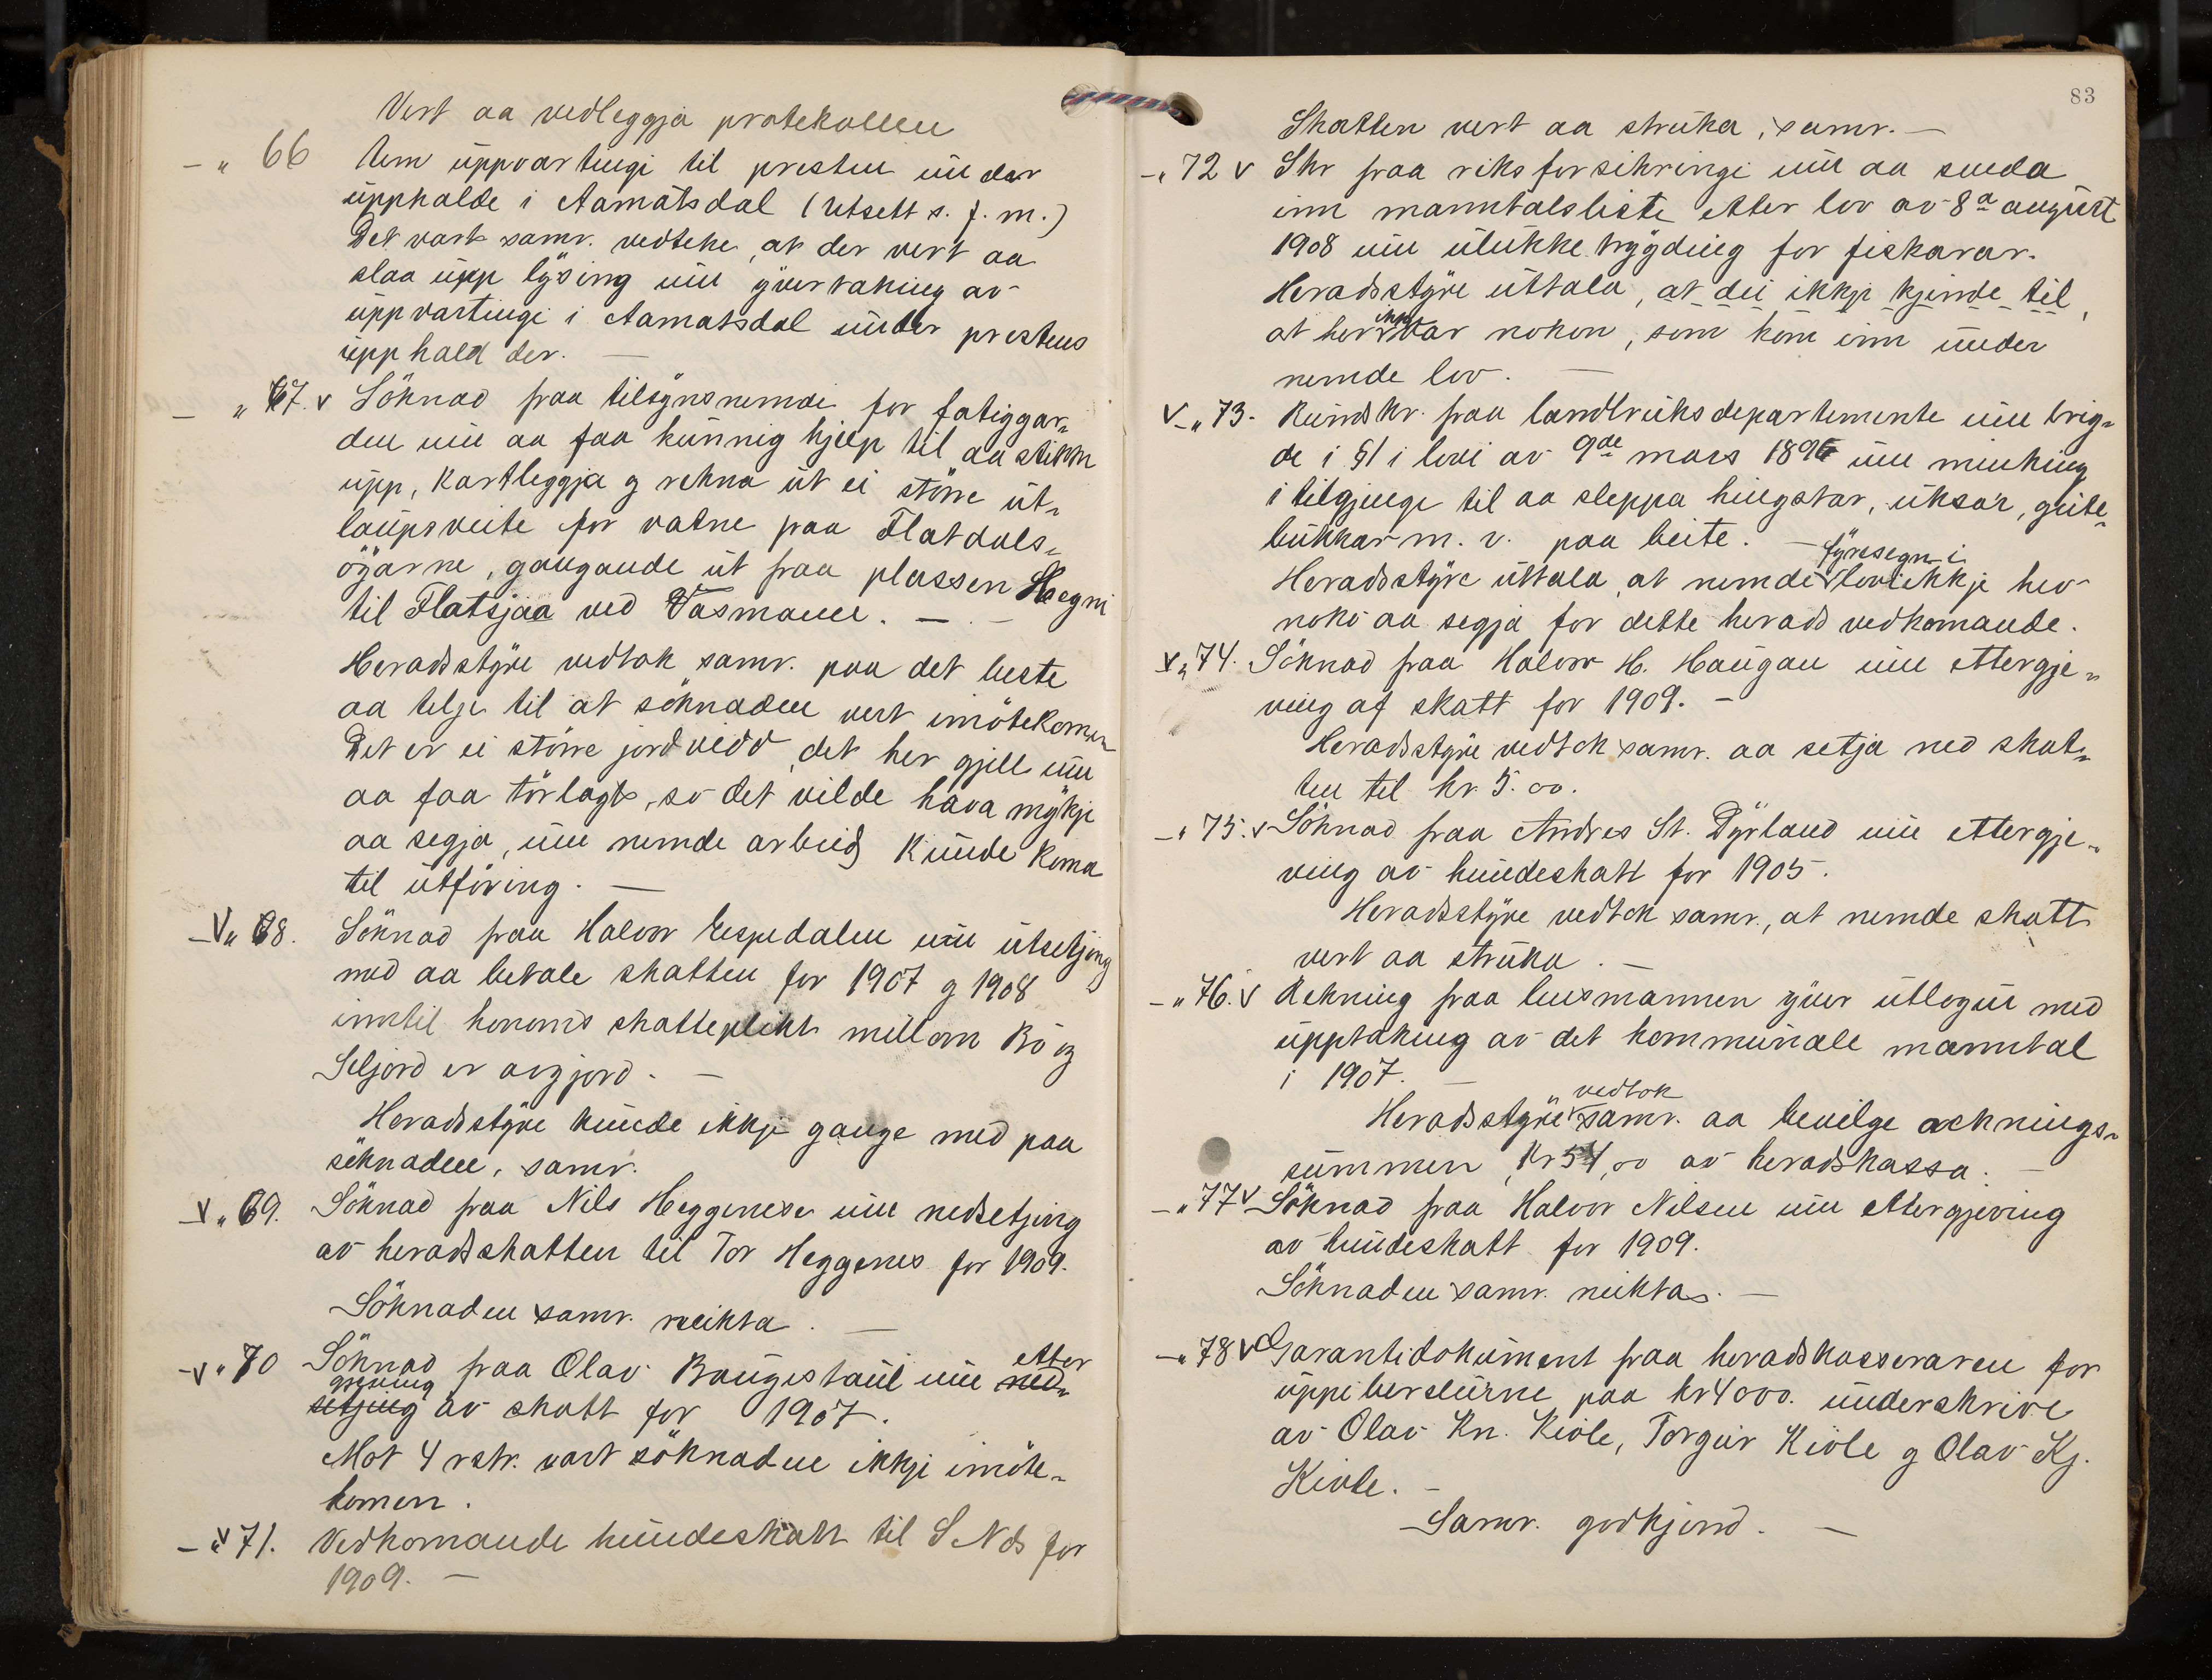 Vert aa vedleggja protekollen
— „ 66 Um uppvartingi til presten under
upphalde i Aamotsdal (Utsett s. f. m.)
Det vart samr. vedteke, at der vert aa
slaa upp lysing um yvertaking av
uppvartingi i Aamotsdal under prestens
upphald der. —
— „ 67. v Söknad fraa tilsynsnemdi for fatiggar„
den um aa faa kunnig hjelp til aa stikka
upp, kartleggja og rekna ut ei större ut„
laupsveite for vatne paa Flatdals„
öyarne, gangande ut fraa plassen Hegni
til Flatsjaa ved Vasmoen. —
Heradsstyre vedtok samr. paa det beste
aa telje til at söknaden vert imötekomen
Det er ei större jordvidd det her gjeld um
aa faa törlagt, so det vilde hava mykje
aa segja, um nemde arbeid kunde koma
til utföring. —
— v „ 68. Söknad fraa Halvor Espedalen um utsetjing
med aa betale skatten for 1907 og 1908
inntil honoms skatteplikt millom Bö og
Seljord er avgjord. —
Heradsstyre kunde ikkje gange med paa
söknaden, samr.
— v „ 69. Söknad fraa Nils Heggenese um nedsetjing
av heradsskatten til Tor Heggenes for 1909.
Söknaden samr. neikta. —
— v „ 70 Söknad fraa Olav Baugestaul um ned„ etter
setjing gjeving av skatt for 1907.
Mot 4 rstr. vart söknaden ikkje imöte„
komen.
— „ v 71. Vedkomande hundeskatt til S Nds for
1909. —
83
Skatten vert aa struka, samr. —
— „ 72 v Skr fraa riksforsikringi um aa senda
inn manntalsliste etter lov av 8a august
1908 um ulukketrygding for fiskarar.
Heradsstyre uttala, at dei ikkje kjende til,
at her ikkje var nokon, som kom inn under
nemde lov. —
v — „ 73. Rundskr. fraa landbruksdepartemente um brig„
de i §1 i lovi av 9de mars 1896 um minking
i tilgjenge til aa sleppa hingstar, uksar, geite„
bukkar m. v. paa beite. —
Heradsstyre uttala, at nemde fyresegn i lovi ikkje hev
noko aa segja for dette herads vedkomande.
v „ 74. Söknad fraa Halvor H. Haugan um ettergje„
ving af skatt for 1909. —
Heradsstyre vedtok samr. aa setja ned skat„
ten til kr. 5.00.
— „ 75. v Söknad fraa Andres St. Dyrland um ettergje„
ving av hundeskatt for 1905.
Heradsstyre vedtok samr., at nemde skatt
vert aa struka. —
— „ 76. v Rekning fraa lensmannen yver utlogur med
upptaking av det kommunale manntal
i 1907. —
Heradsstyre vedtok samr. aa bevilge reknings„
summen, kr 54,00 av heradskassa. —
— „ 77 v Söknad fraa Halvor Nilsen um ettergjeving
av hundeskatt for 1909.
Söknaden samr. neiktas. —
— „ 78 v Garantidokument fraa heradskasseraren for
uppeberslurne paa kr 4000. underskrive
av Olav Kn. Kivle, Torgur Kivle og Olav Kj.
Kivle. —
Samr. godkjend. —